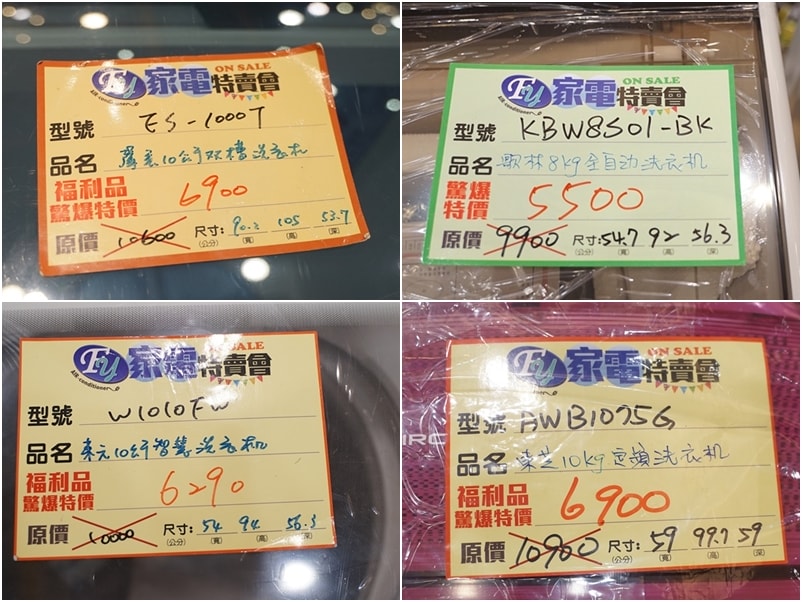 FY 家電特賣會 ON SALE
Air-conditioner
型號 ES-1000T
品名 聲寶10公斤双槽洗衣机
福利品
驚爆特價 6900
原價 10600 尺寸: 90.2 105 53.7
(公分) (寬) (高) (深)
FY 家電特賣會 ON SALE
Air-conditioner
型號 KBW8S01-BK
品名 歌林8kg全自动洗衣机
驚爆
特價 5500
原價 9900 尺寸: 54.7 92 56.3
(公分) (寬) (高) (深)
FY 家電特賣會 ON SALE
Air-conditioner
型號 W1010FW
品名 東元10公斤智慧洗衣机
福利品
驚爆特價 6290
原價 10000 尺寸: 54 94 56.3
(公分) (寬) (高) (深)
FY 家電特賣會 ON SALE
Air-conditioner
型號 AWB1075G
品名 東芝10kg定頻洗衣机
福利品
驚爆特價 6900
原價 10900 尺寸: 59 99.7 59
(公分) (寬) (高) (深)